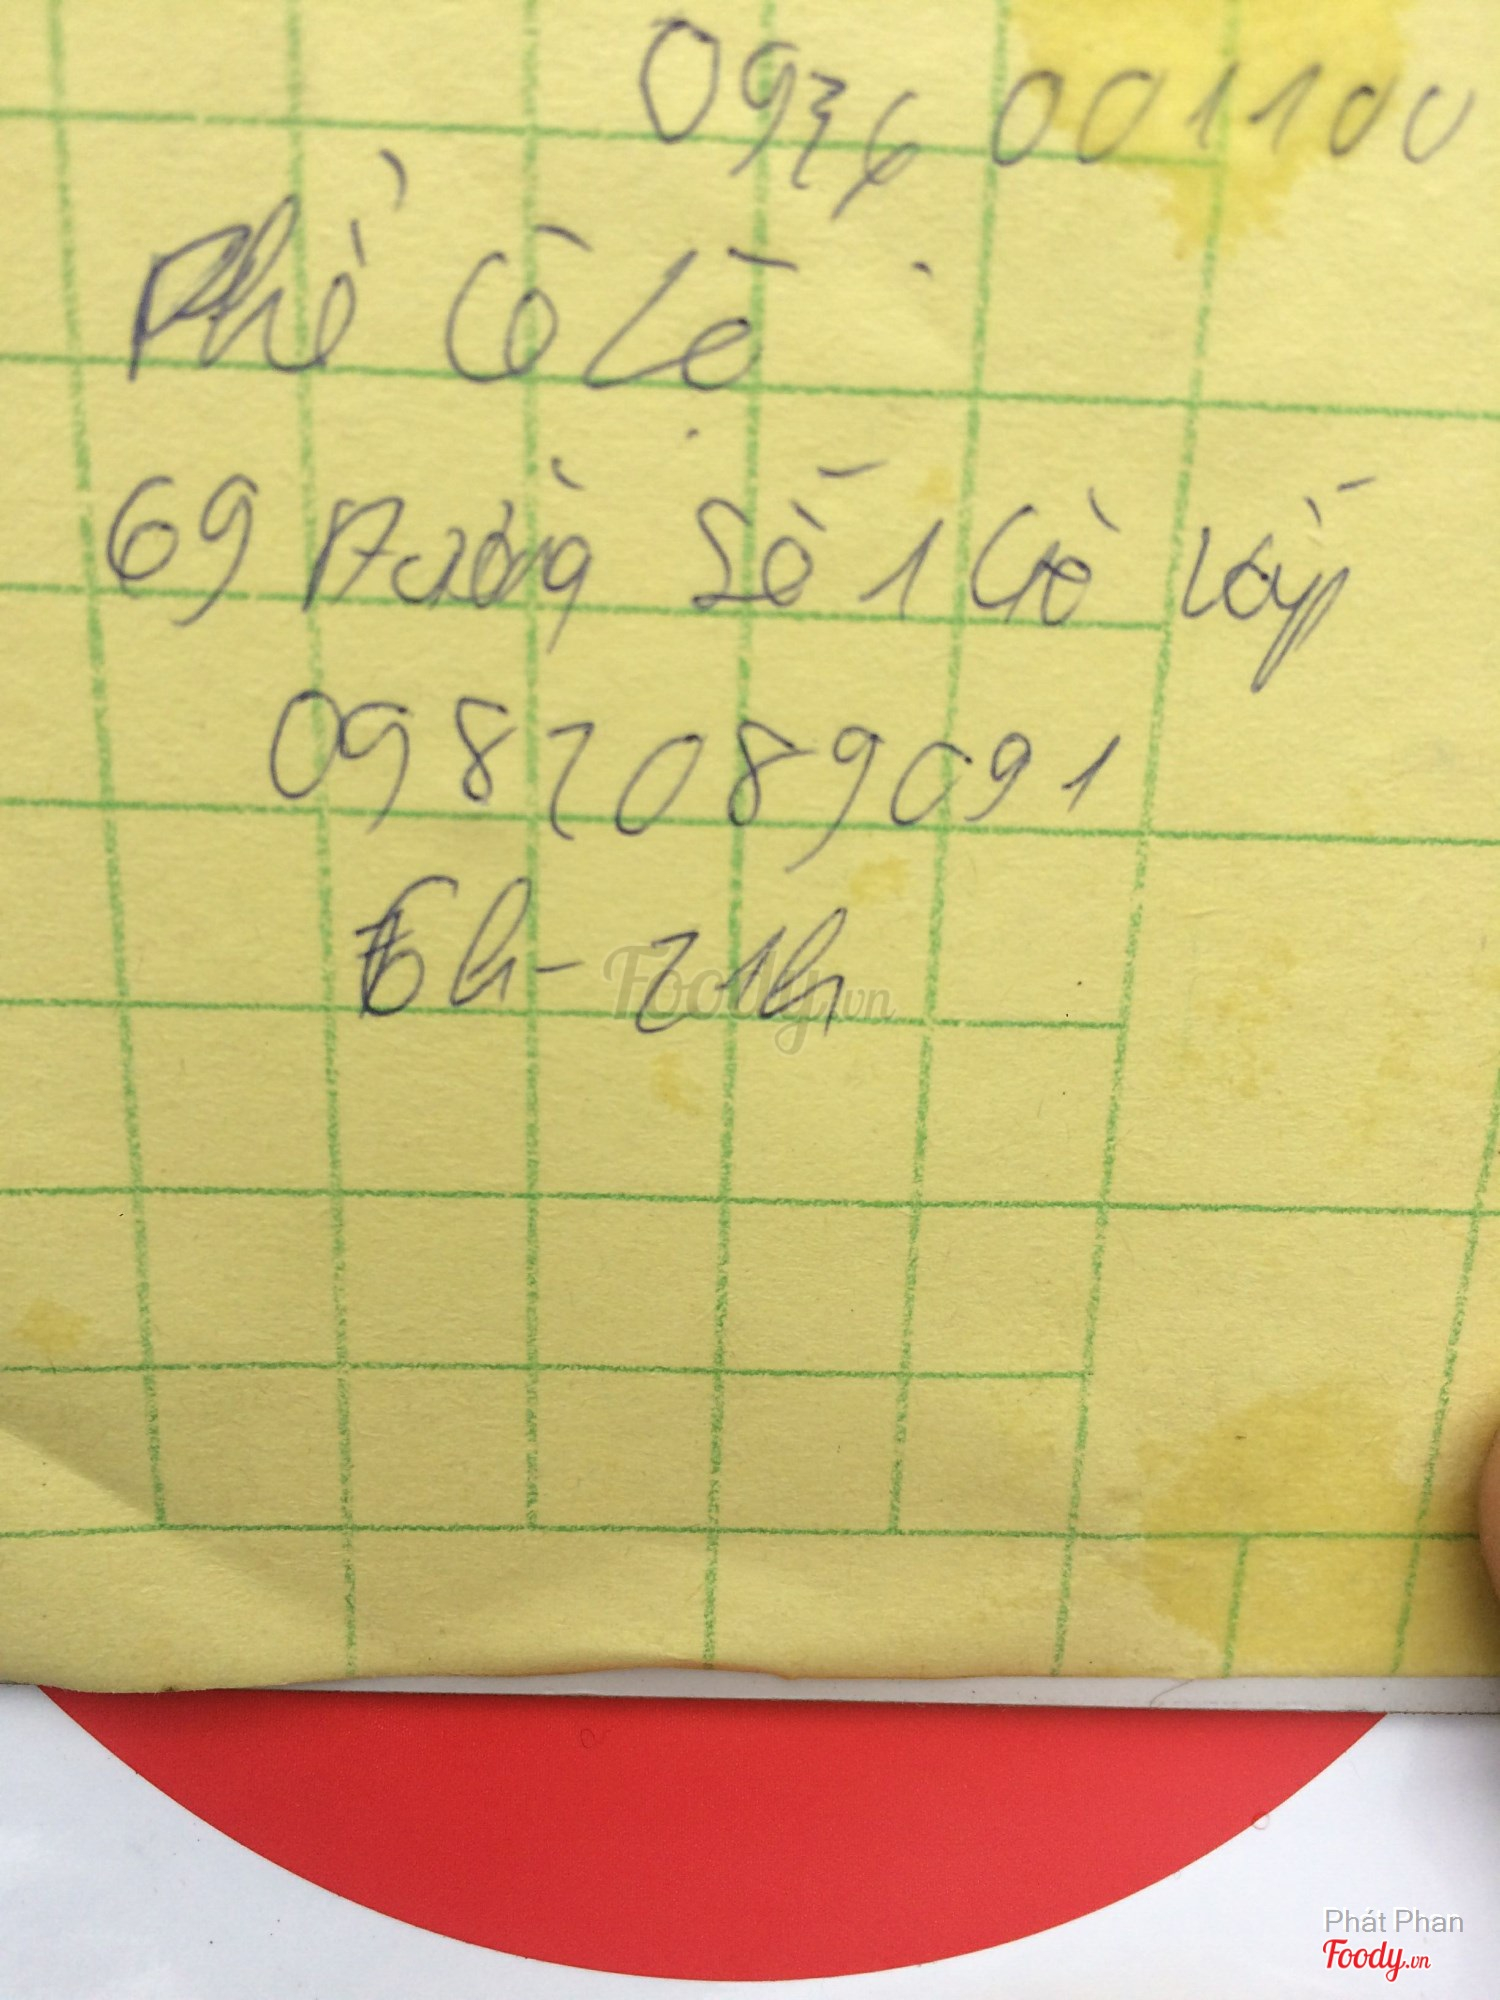 0936001100
Phở Cô Lệ
69 Đường Số 1 Gò Vấp
0982089091
6h - 21h
Foody.vn
Phát Phan
Foody.vn